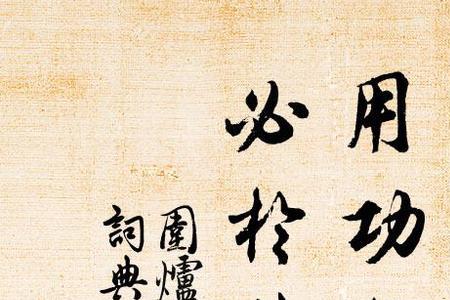 用功
必於
圍爐
詞典